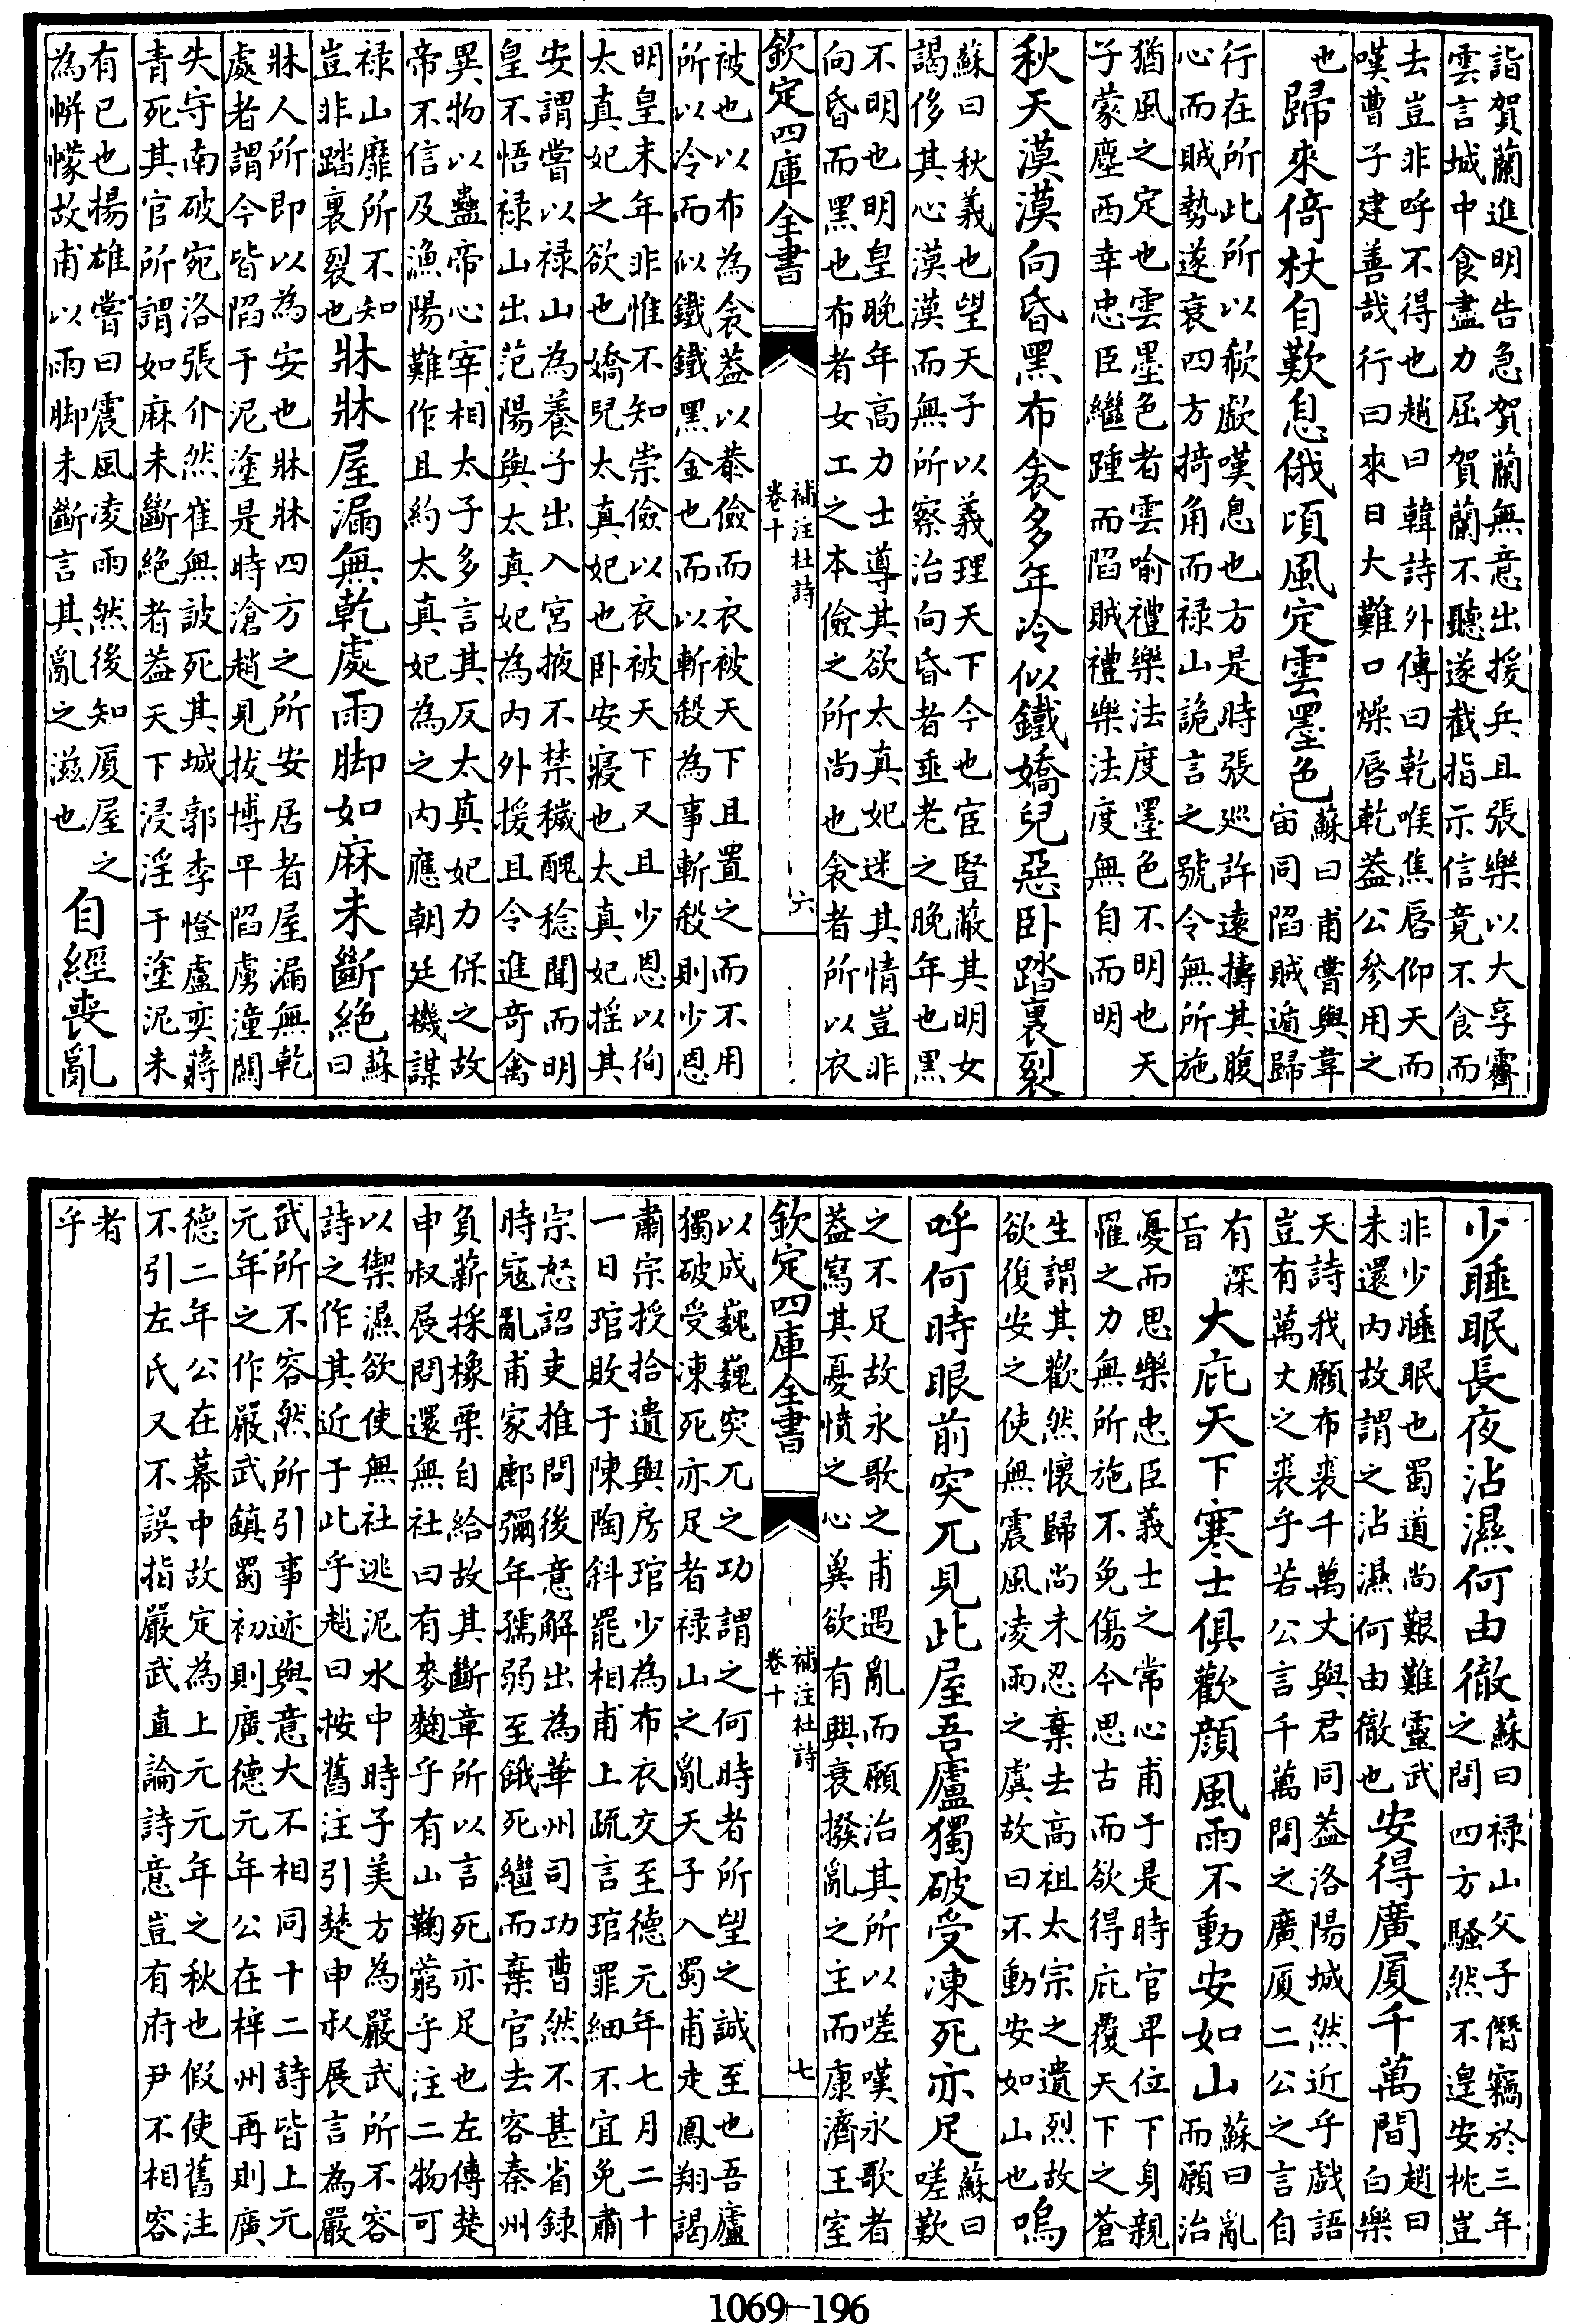 詣賀蘭進明告急賀蘭無意出援兵且張樂以大享霽
雲言城中食盡力屈賀蘭不聽遂截指示信竟不食而
去豈非呼不得也趙曰韓詩外傳曰乾喉焦唇仰天而
嘆曹子建善哉行曰來日大難口燥唇乾葢公參用之
也
歸來倚杖自歎息俄頃風定雲墨色
蘇曰甫嘗與韋
宙同陷賊遁歸
行在所此所以欷歔嘆息也方是時張廵許遠摶其腹
心而賊勢遂衰四方掎角而禄山詭言之號令無所施
猶風之定也雲墨色者雲喻禮樂法度墨色不明也天
子蒙塵西幸忠臣繼踵而陷賊禮樂法度無自而明
秋天漠漠向昏黑布衾多年冷似鐵嬌兒惡卧踏裏裂
蘇曰秋義也望天子以義理天下今也宦豎蔽其明女
謁侈其心漠漠而無所察治向昏者垂老之晚年也黑
不明也明皇晚年高力士導其欲太真妃迷其情豈非
向昏而黑也布者女工之本儉之所尚也衾者所以衣
欽定四庫全書
補注杜詩
卷十
六
被也以布為衾葢以恭儉而衣被天下且置之而不用
所以冷而似鐵鐵黑金也而以斬殺為事斬殺則少恩
明皇末年非惟不知崇儉以衣被天下又且少恩以徇
太真妃之欲也嬌兒太真妃也卧安寢也太真妃揺其
安謂嘗以禄山為養子出入宮掖不禁穢醜稔聞而明
皇不悟禄山出范陽與太真妃為内外援且令進奇禽
異物以蠱帝心宰相太子多言其反太真妃力保之故
帝不信及漁陽難作且約太真妃為之内應朝廷機謀
禄山靡所不知
豈非踏裏裂也
牀牀屋漏無乾處雨脚如麻未斷絶
蘇
曰
牀人所即以為安也牀牀四方之所安居者屋漏無乾
處者謂今皆陷于泥塗是時滄趙見拔博平陷虜潼關
失守南破宛洛張介然崔無詖死其城郭李憕盧奕蔣
青死其官所謂如麻未斷絶者葢天下浸淫于塗泥未
有已也揚雄嘗曰震風凌雨然後知厦屋之
為帡幪故甫以雨脚未斷言其亂之滋也
自經喪亂
少睡眠長夜沾濕何由徹
蘇曰禄山父子僭竊於三年
之間四方騷然不遑安枕豈
非少睡眠也蜀道尚艱難靈武
未還内故謂之沾濕何由徹也
安得廣厦千萬間
趙曰
白樂
天詩我願布裘千萬丈與君同葢洛陽城然近乎戯語
豈有萬丈之裘乎若公言千萬間之廣厦二公之言自
有深
旨
大庇天下寒士俱歡顔風雨不動安如山
蘇曰亂
而願治
憂而思樂忠臣義士之常心甫于是時官卑位下身親
罹之力無所施不免傷今思古而欲得庇覆天下之蒼
生謂其歡然懷歸尚未忍棄去高祖太宗之遺烈故
欲復安之使無震風凌雨之虞故曰不動安如山也
嗚
呼何時眼前突兀見此屋吾廬獨破受凍死亦足
蘇曰
嗟歎
之不足故永歌之甫遇亂而願治其所以嗟嘆永歌者
葢寫其憂憤之心兾欲有興衰撥亂之主而康濟王室
欽定四庫全書
補注杜詩
卷十
七
以成巍巍突兀之功謂之何時者所望之誠至也吾廬
獨破受凍死亦足者禄山之亂天子入蜀甫走鳳翔謁
肅宗授拾遺與房琯少為布衣交至德元年七月二十
一日琯敗于陳陶斜罷相甫上疏言琯罪細不宜免肅
宗怒詔吏推問後意解出為華州司功曹然不甚省録
時寇亂甫家鄜彌年孺弱至餓死繼而棄官去客秦州
負薪採橡栗自給故其斷章所以言死亦足也左傳楚
申叔展問還無社曰有麥麴乎有山鞠藭乎注二物可
以禦濕欲使無社逃泥水中時子美方為嚴武所不容
詩之作其近于此乎趙曰按舊注引楚申叔展言為嚴
武所不容然所引事迹與意大不相同十二詩皆上元
元年之作嚴武鎮蜀初則廣德元年公在梓州再則廣
德二年公在幕中故定為上元元年之秋也假使舊注
不引左氏又不誤指嚴武直論詩意豈有府尹不相容
者
乎
1069—196